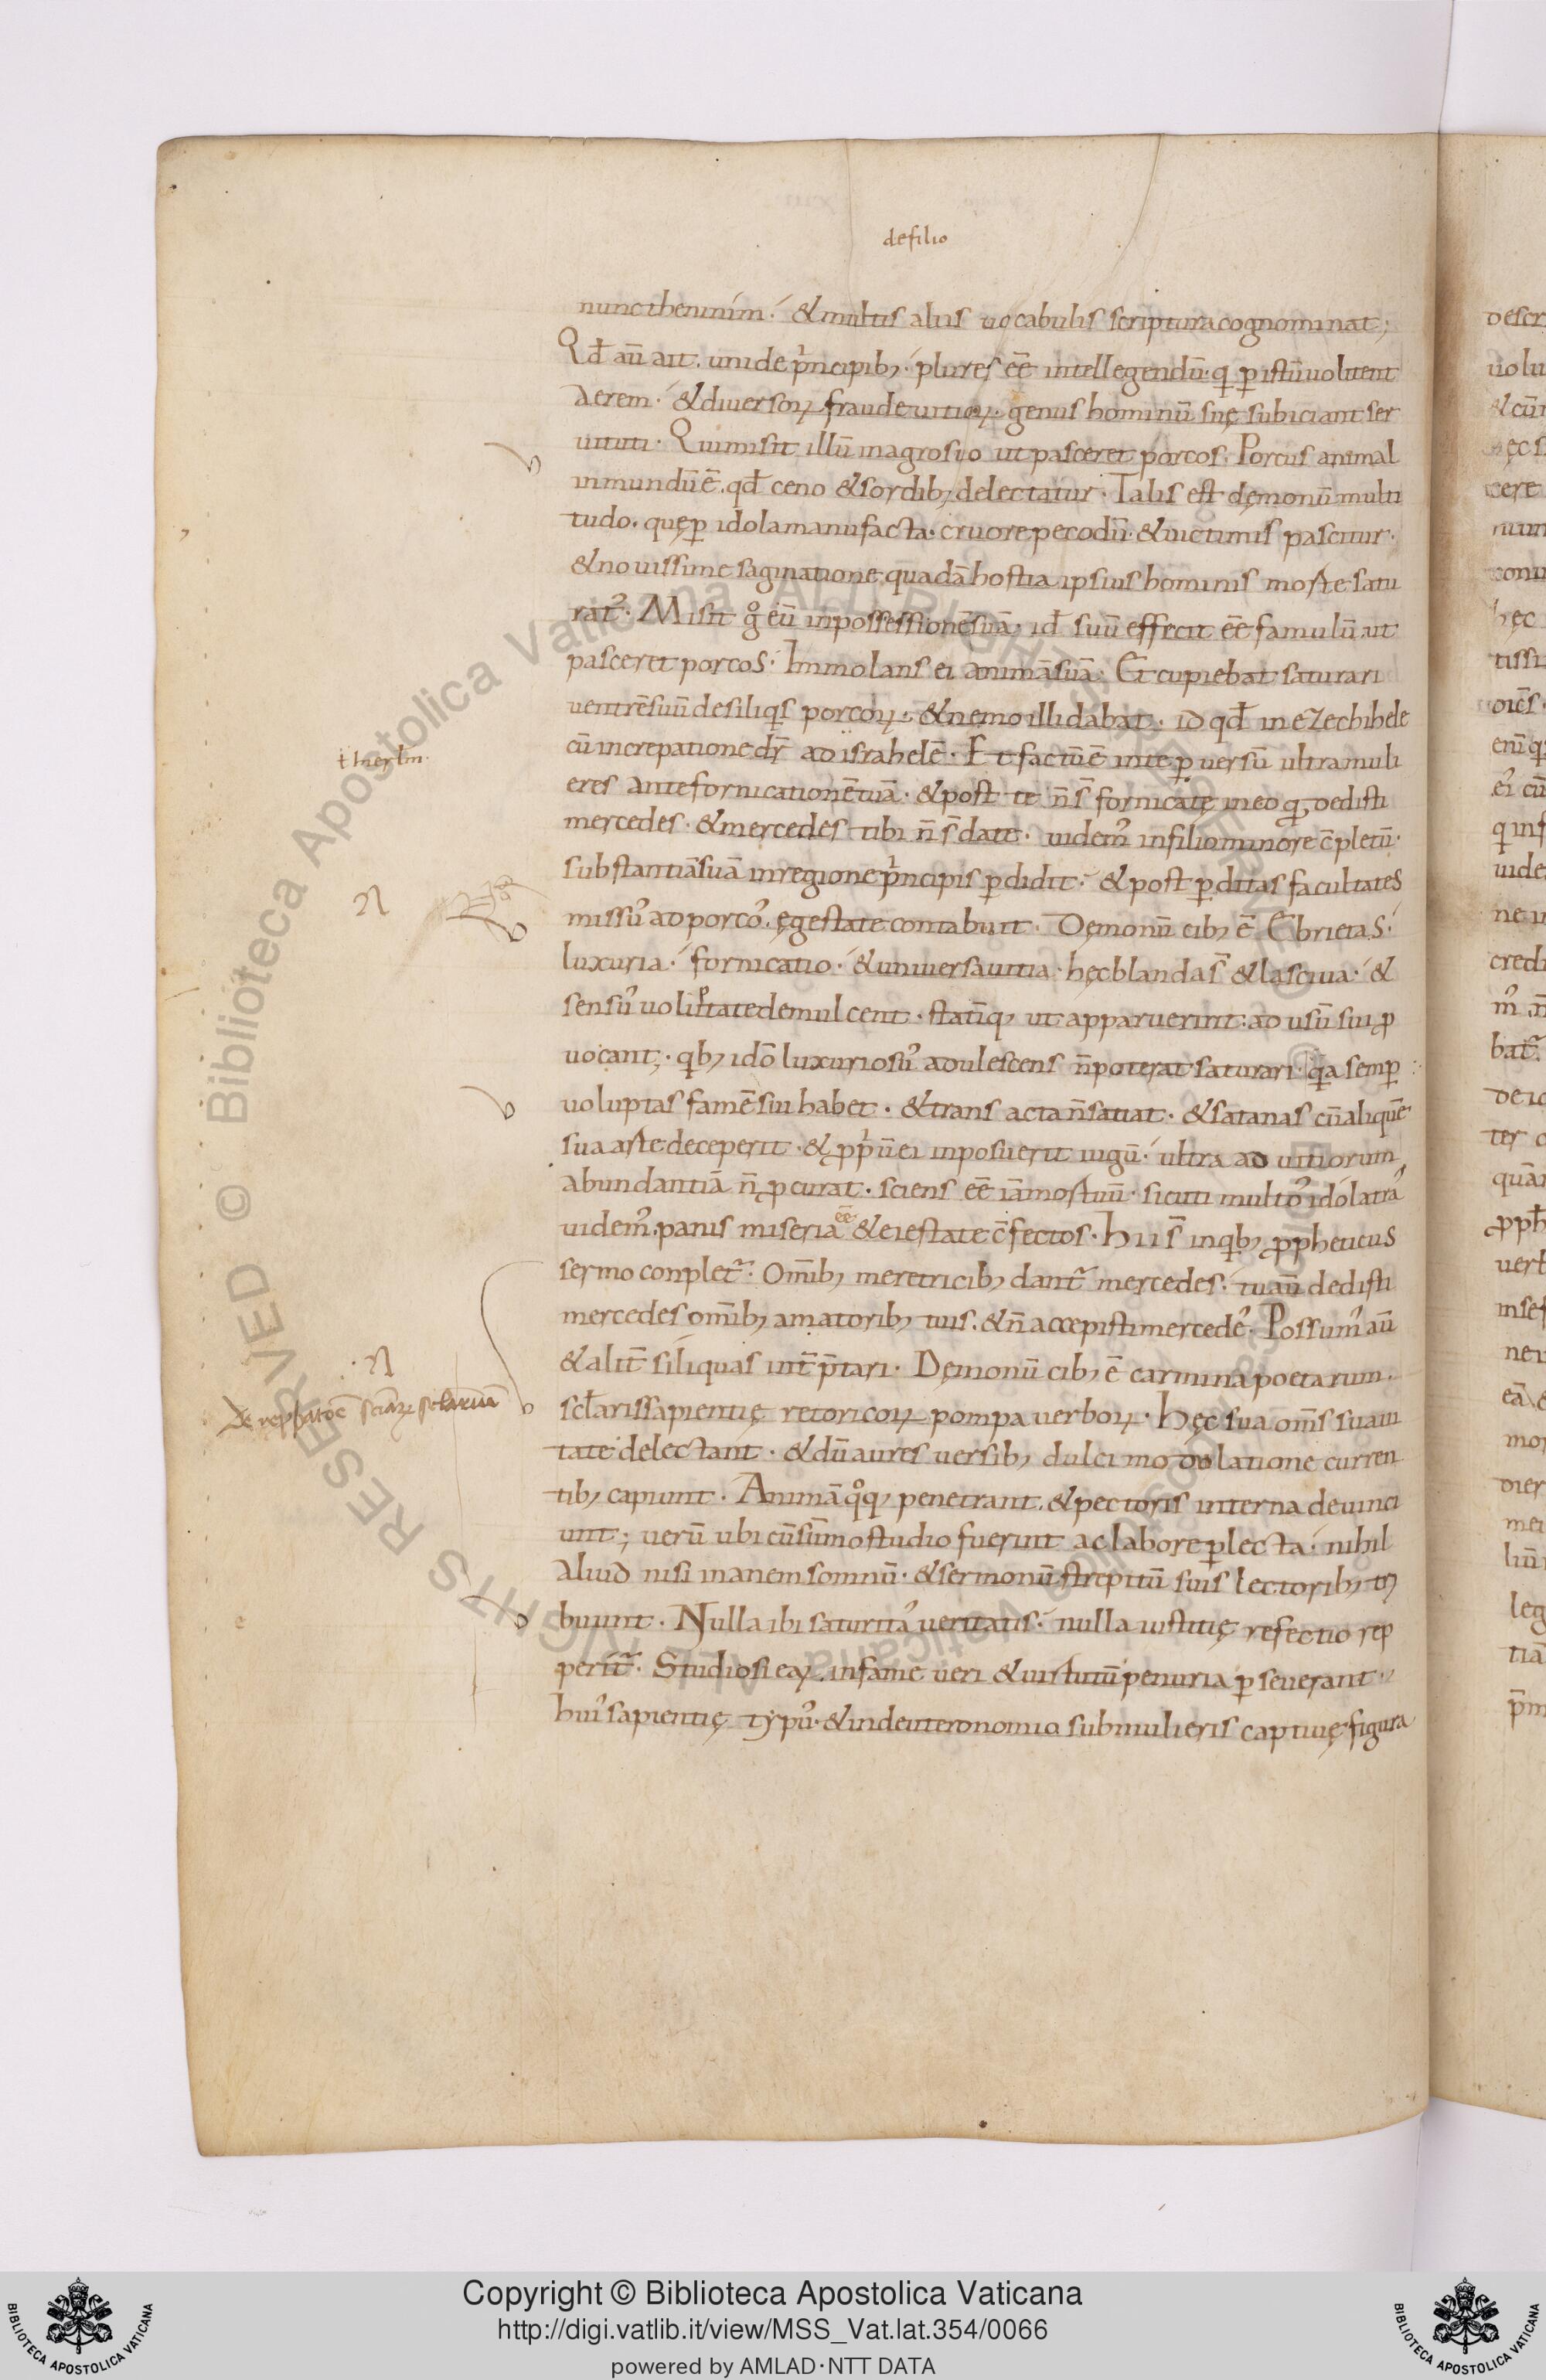 de filio
nunc theninim. & multis aliis uocabulis scriptura cognominat;
Qđ aū ait. uni de p̍ncipib; plures eē intellegendū. q̨ ꝑ istū uolitent
aerem. & diuersoꝝ fraude uitioꝝ. genus hominū suę subiciant ser
uituti. Qui misit illū in agro suo ut pasceret porcos. Porcus animal
inmundū ē. qđ ceno & sordib; delectatur. Talis est dęmonū multi
tudo. quę ꝑ idola manufacta. cruore pecodū. & uictimis pascitur.
& nouissime saginatione quadā hostia ipsius hominis morte satu
rat᷒. Misit g̊ eū in possessionē suā. id suū effecit eē famulū ut
pasceret porcos. Immolans ei animā suā. Et cupiebat saturari
uentrē suū de siliq̨s porcoꝝ. & nemo illi dabat. id qđ in ezechihele
cū increpatione dr̄ ad israhelē. Et factū ē in te ꝑuersū ultra muli
eres ante fornicationē tuā. & post te n̄ s̄ fornicatę in eo q̨ dedisti
mercedes. & mercedes tibi n̄ s̄ date. uidem᷒ in filio minore c̄pletū.
substantiā suā in regione p̍ncipis ꝑdidit. & post ꝑditas facultates
missu᷒ ad porco᷒. ęgestate contabuit. Dęmonū cib; ē Ebrietas.
luxuria. fornicatio. & uniuersa uitia. hęc blanda s̄ & lasciua. &
sensu᷒ uoluptate demulcent. statīq; ut apparuerint. ad usū sui ꝓ
uocant; qb; idō luxuriosu᷒ adulescens n̄ poterat saturari. q̄a semꝑ
uoluptas famē sui habet. & transacta n̄ satiat. & satanas cū aliquē
sua arte deceperit. & ꝓpriū ei inposuerit iugū. ultra ad uitiorum
abundantiā n̄ ꝓcurat. sciens eē iā mortuū. sicuti multo᷒ idolatra᷒
uidem᷒. panis miseria eē & eiestate c̄fectos. Hii s̄ in qb; ꝓpheticus
sermo conplet᷒. Omīb; meretricib; dant᷒ mercedes. tu aū dedisti
mercedes omīb; amatorib; tuis. & n̄ accepisti mercede᷒. Possum᷒ aū
& alit̄ siliquas int̄p̄tari. Dęmonū cib; ē carmina poetarum.
sclaris sapientię retoricoꝝ pompa uerboꝝ. Hęc sua om̄s suaui
tate delectant. & dū aures uersib; dulci modolatione curren
tib; capiunt. Animā qq; penetrant. & pectoris interna deuinci
unt; uerū ubi cū sūmo studio fuerint ac labore ꝑlecta. nihil
aliud nisi inanem somnū. & sermonū strepitū suis lectorib; tri
buunt. Nulla ibi saturita᷒ ueritatis. nulla iustitię refectio rep
perit᷒. Studiosi eaꝝ in fame ueri & uirtutū penuria ꝑseuerant.
hui᷒ sapientię typu᷒. & in deuteronomio sub mulieris captiuę figura
Copyright © Biblioteca Apostolica Vaticana
http://digi.vatlib.it/view/MSS_Vat.lat.354/0066
powered by AMLAD·NTT DATA